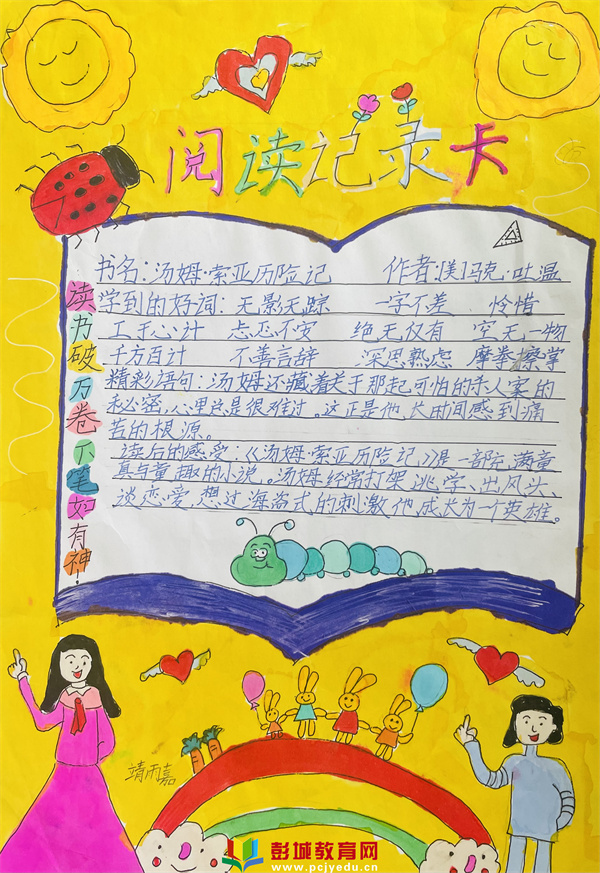 阅读记录卡
书名:汤姆·索亚历险记 作者:[美]马克·吐温
学到的好词:无影无踪 一字不差 怜惜
工于心计 忐忑不安 绝无仅有 空无一物
千方百计 不善言辞 深思熟虑 摩拳擦掌
精彩语句:汤姆还藏着关于那起可怕的杀人案的
秘密,心里总是很难过。这正是他长时间感到痛
苦的根源。
读后的感受:《汤姆·索亚历险记》是一部充满童
真与童趣的小说。汤姆经常打架、逃学、出风头、
谈恋爱,想过海盗式的刺激,他成长为一个英雄。
读书破万卷下笔如有神!
靖雨嘉
彭城教育网
www.pcjyedu.cn